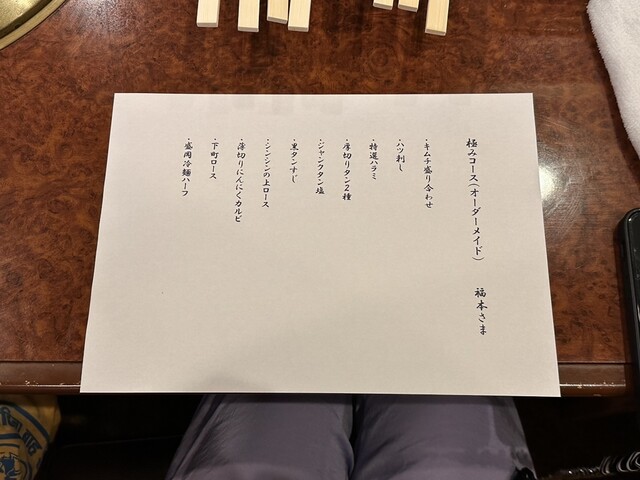 極みコース(オーダーメイド) 福本さま
・キムチ盛り合わせ
・ハツ刺し
・特選ハラミ
・厚切りタン2種
・ジャンクタン塩
・黒タンすじ
・シンシンの上ロース
・薄切りにんにくカルビ
・下町ロース
・盛岡冷麺ハーフ